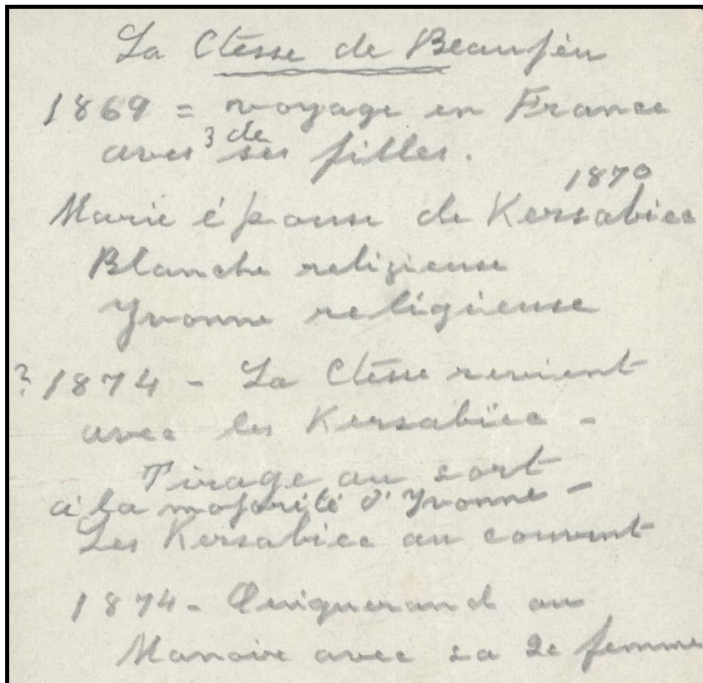 La Ctesse de Beaujeu
1869 = voyage en France
avec 3 de ses filles.
1870
Marie épouse de Kersabiec
Blanche religieuse
Yvonne religieuse
? 1874 - La Ctesse revient
avec les Kersabiec -
Tirage au sort
à la majorité d'Yvonne -
Les Kersabiec au couvent
1874 - Quiquerand au
Manoir avec sa 2e femme